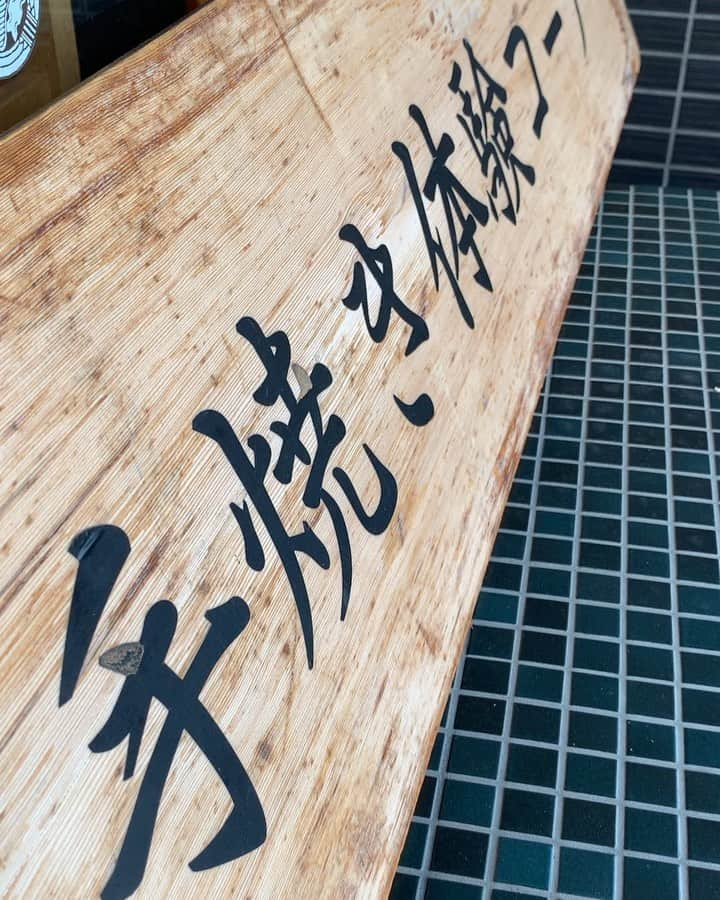 手焼き体験コー